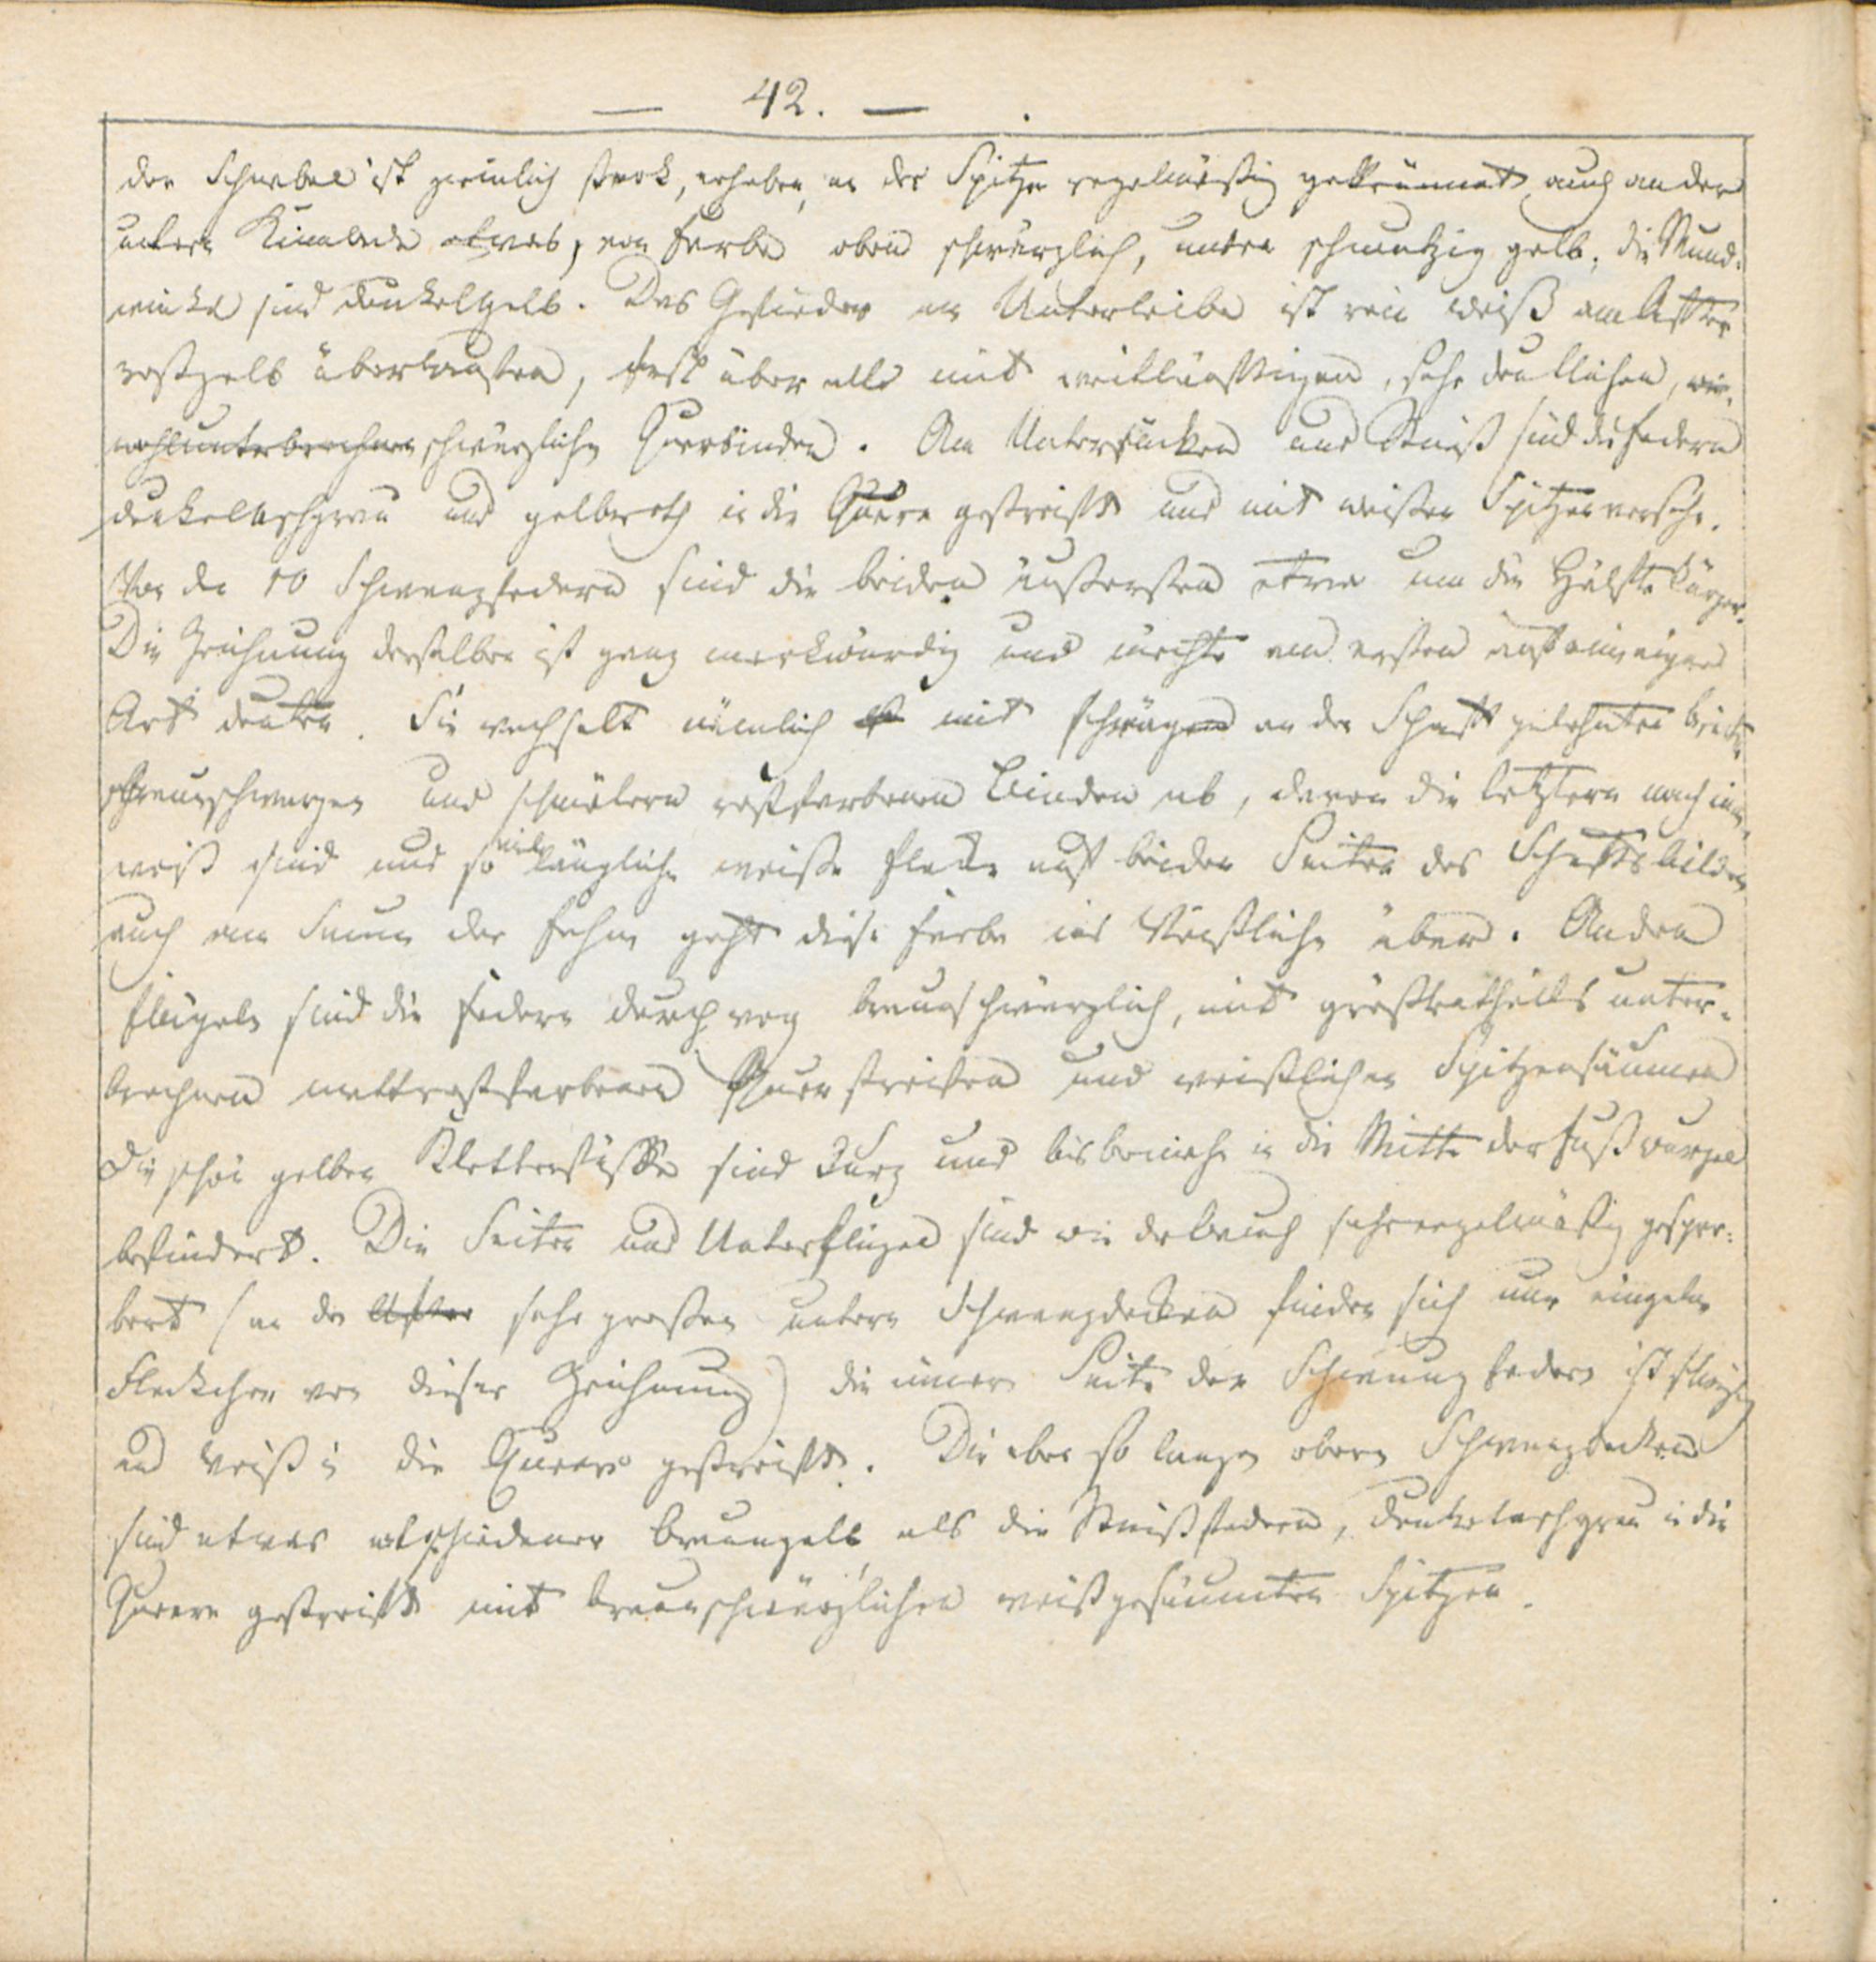 — 42. —
der Schnabel ist ziemlich stark, erhaben, an der Spitze regelmäßig gekrümmt auch an der
untern Kinnlade etwas, von Farbe oben schwärzlich, unten schmutzig gelb; die Mund-
winkel sind dunkelgelb. Das Gefieder am Unterleibe ist rein weiß am After
rostgelb überlaufen, fast über all mit weitläuftigen, sehr deutlichen,
schwärzlichen Querbinden. Am Unterrücken und Steiß sind die Federn
dunkelaschgrau und gelbroth in die Quere gestreift und mit weißen Spitzen versehn.
Von den 10 Schwanzfedern sind die beiden äußersten etwa um die Hälfte kürzer.
Die Zeichnung derselben ist ganz merkwürdig und möchte am ersten auf eine eigene
Art deuten. Sie wechselt nämlich mit schrägen an den Schaft gelehnten breiten
braunschwarzen und schmälern rostfarbenen Binden ab, davon die letztern nach innen
weiß sind und so viele längliche weiße Flecke auf beiden Seiten des Schafts bilden
auch am Saum der Fahne geht diese Farbe ins Weißliche über. An den
Flügeln sind die Federn durchweg braunschwärzlich, mit größtentheils unter-
brochnen mattrostfarbenen Querstreifen und weißlichen Spitzensäumen
Die schön gelben Kletterfüße sind kurz und bis beinahe in die Mitte der Fußwurzel
befiedert. Die Seiten und Unterflügel sind wie der Bauch sehr regelmäßig gesper-
bert (an den After sehr großen untern Schwanzdecken finden sich nur einzelne
Fleckchen von dieser Zeichnung) die innere Seite der Schwungfedern ist schwärzlich
und weiß in die Queere gestreift. Die eben so langen obern Schwanzdecken
sind etwas entschiedener braungelb als die Steißfedern, dunkelaschgrau in die
Queere gestreift mit braunschwärzlichen weißgesäumten Spitzen.